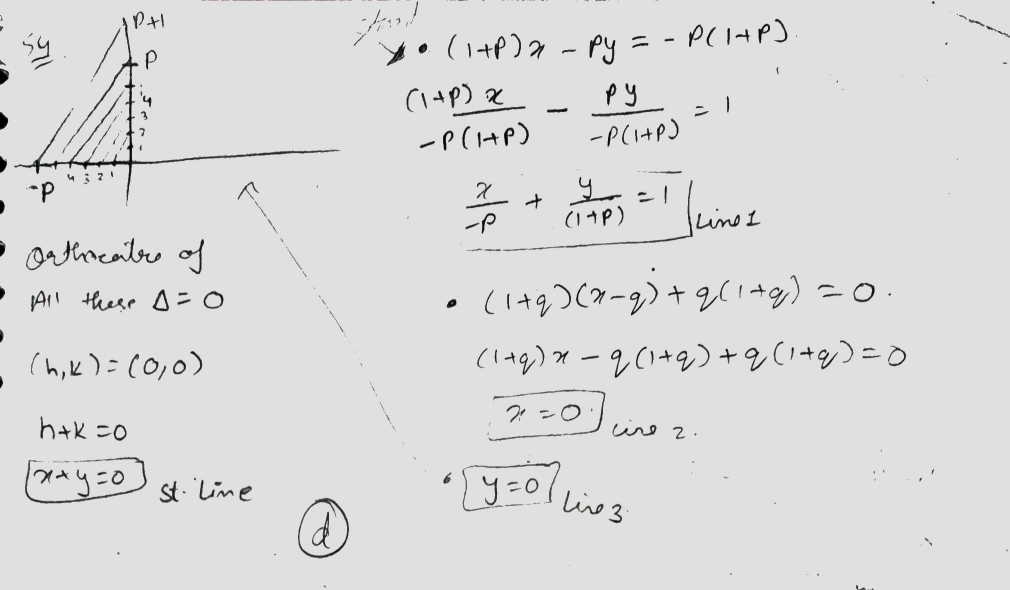 54.
P+1
P
4
3
2
1
-P
4 3 2 1
Orthocentre of
All these Δ = 0
(h,k) = (0,0)
h+k = 0
x+y=0 st. Line
(d)
• (1+P)x - Py = -P(1+P)
(1+P)x / -P(1+P) - Py / -P(1+P) = 1
x / -P + y / (1+P) = 1 Line 1
• (1+q)(x-q) + q(1+q) = 0.
(1+q)x - q(1+q) + q(1+q) = 0
x = 0 Line 2.
• y=0 Line 3